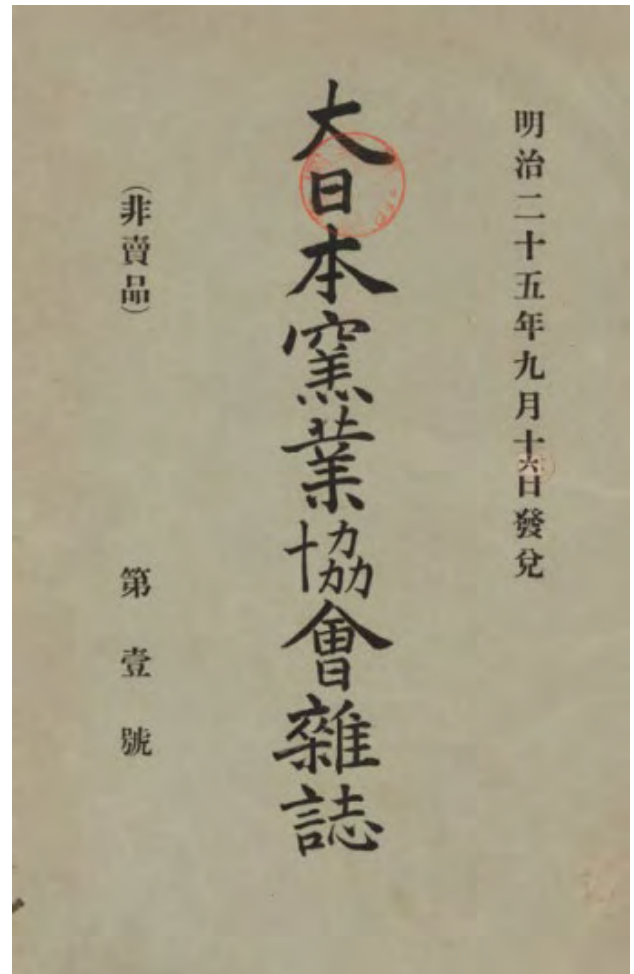 明治二十五年九月十六日發兌
大日本窯業協會雜誌
（非賣品）
第壹號